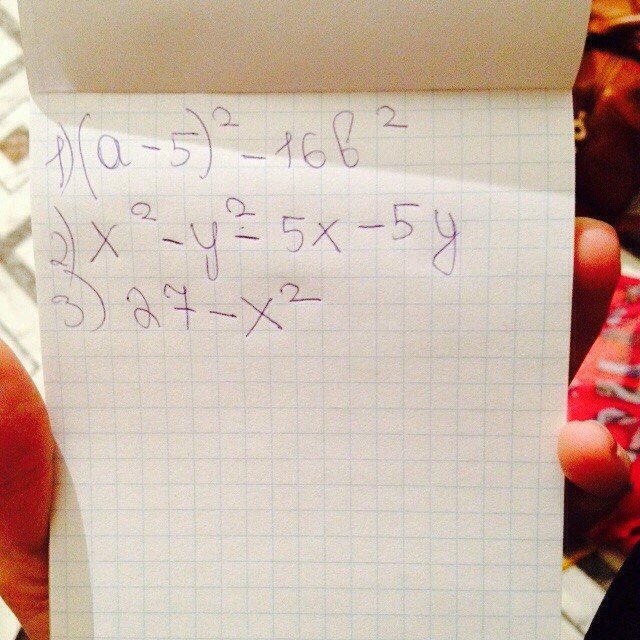 1) (a-5)² - 16b²
2) x² - y² - 5x - 5y
3) 27 - x²